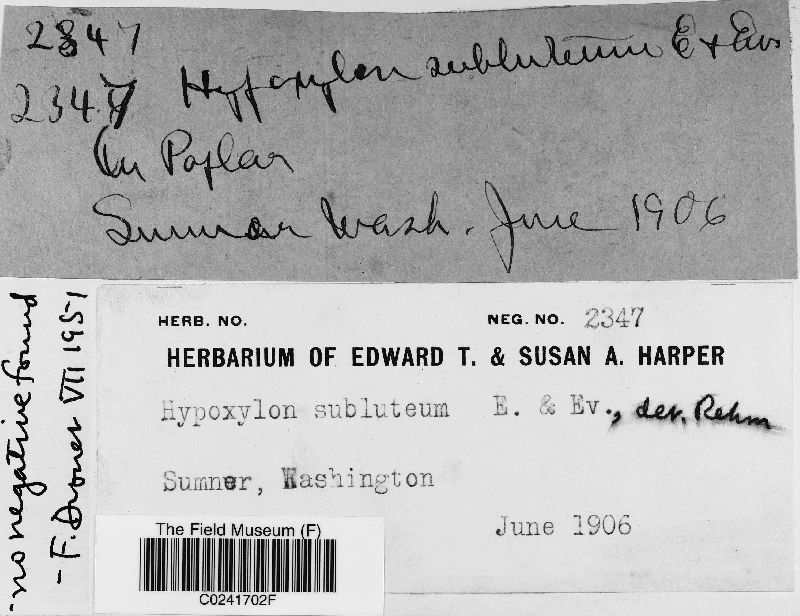 2347
2347 Hypoxylon subluteum E & Ev
On Poplar
Sumner Wash. June 1906
no negative found
- F. Drouet VII 1951
HERB. NO. NEG. NO. 2347
HERBARIUM OF EDWARD T. & SUSAN A. HARPER
Hypoxylon subluteum E. & Ev., det. Rehm
Sumner, Washington
June 1906
The Field Museum (F)
C0241702F